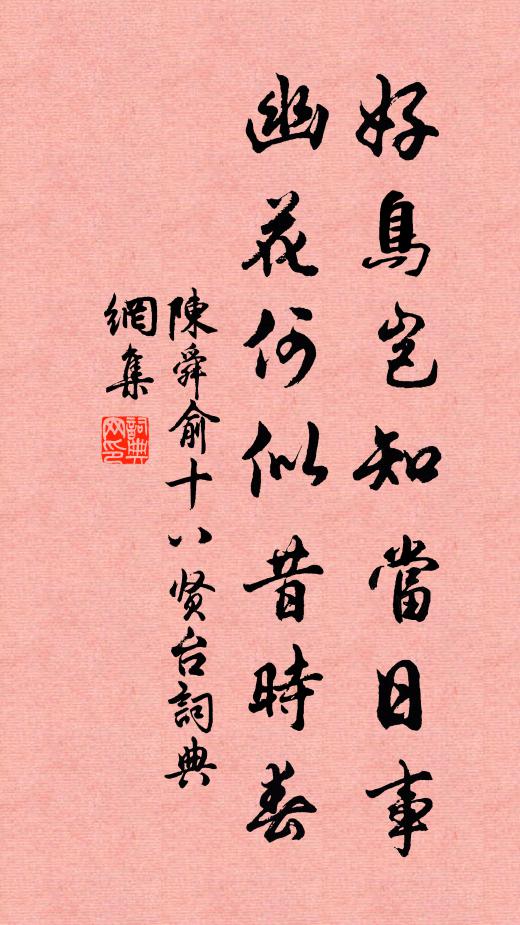 好鳥豈知當日事
幽花何似昔時春
陳舜俞十八贤台詞典
網集
詞典
网印